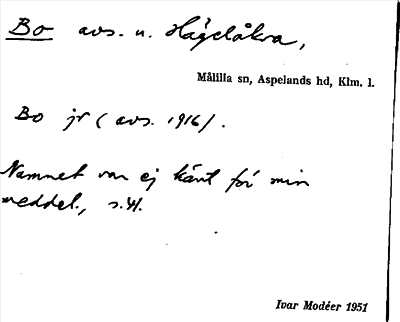 Bo avs. u. Hägelåkra,
Målilla sn, Aspelands hd, Klm. l.
Bo jr (avs. 1916).
Namnet var ej känt för min
meddel., s.41.
Ivar Modéer 1951